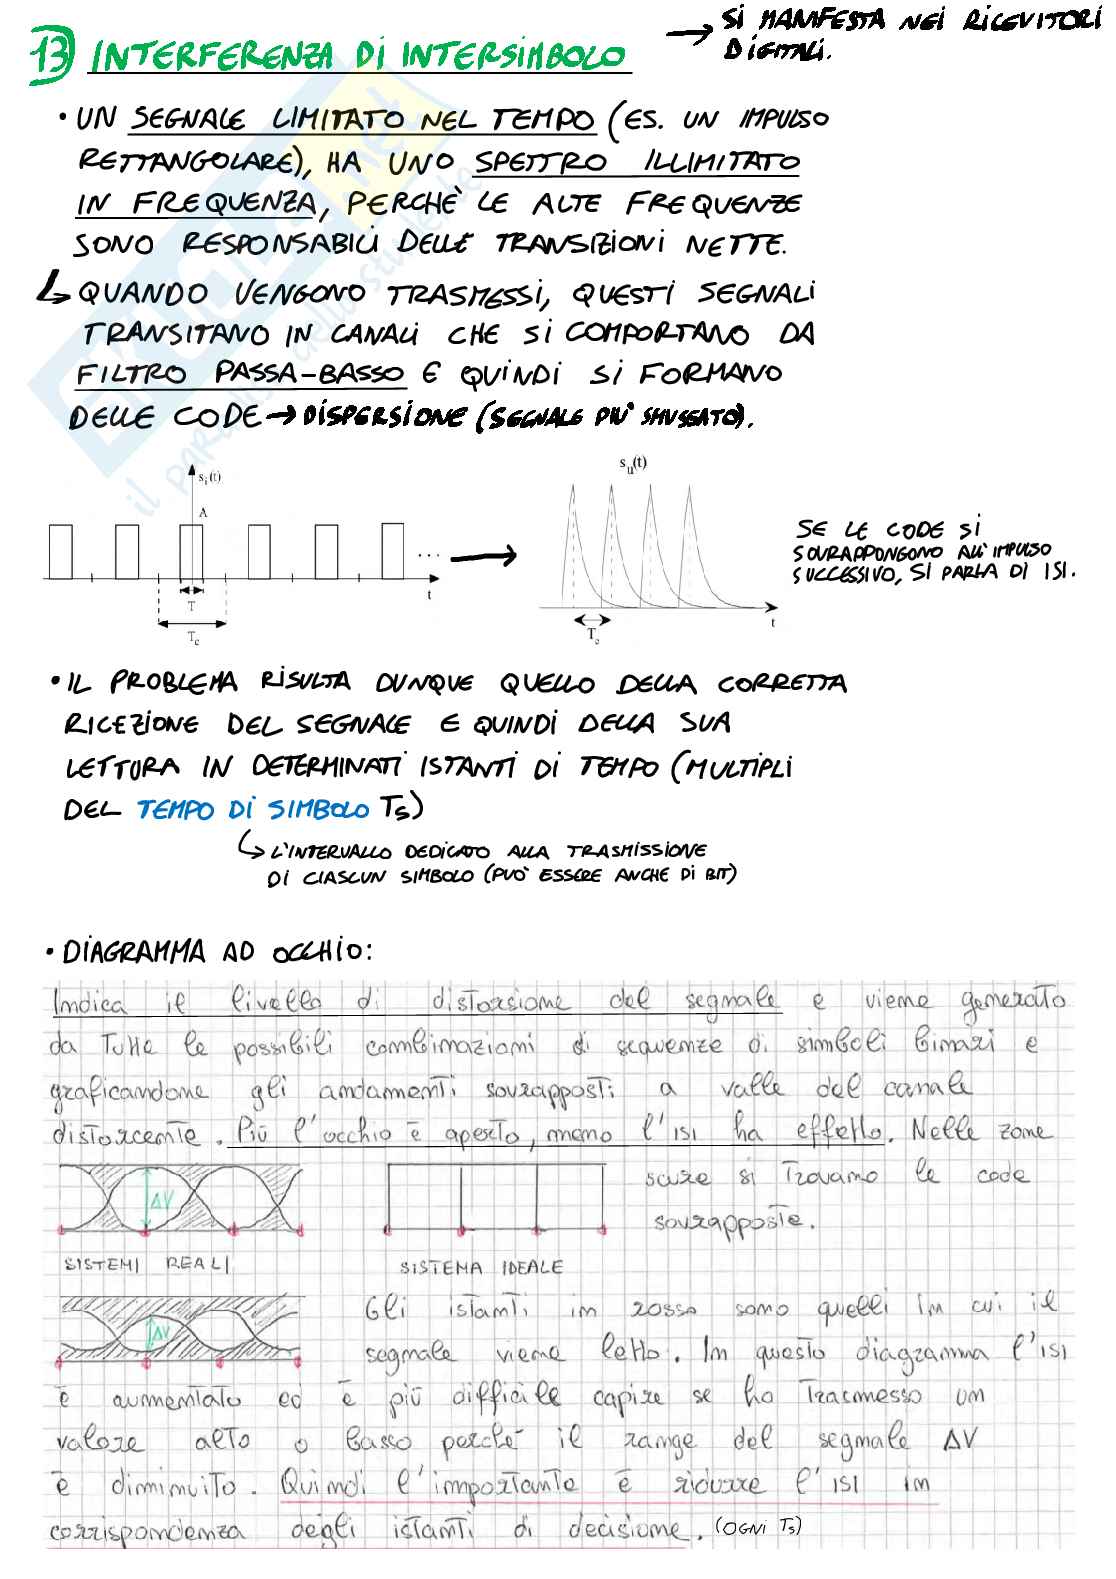 13) INTERFERENZA DI INTERSIMBOLO
→ SI MANIFESTA NEI RICEVITORI
DIGITALI.
• UN SEGNALE LIMITATO NEL TEMPO (ES. UN IMPULSO
RETTANGOLARE), HA UNO SPETTRO ILLIMITATO
IN FREQUENZA, PERCHÈ LE ALTE FREQUENZE
SONO RESPONSABILI DELLE TRANSIZIONI NETTE.
↳ QUANDO VENGONO TRASMESSI, QUESTI SEGNALI
TRANSITANO IN CANALI CHE SI COMPORTANO DA
FILTRO PASSA-BASSO E QUINDI SI FORMANO
DELLE CODE → DISPERSIONE (SEGNALE PIÙ SMUSSATO).
SKUOLA.net
il paradiso dello studente
s_i(t)
A
...
t
T
T_c
s_u(t)
t
T_c
SE LE CODE SI
SOVRAPPONGONO ALL'IMPULSO
SUCCESSIVO, SI PARLA DI ISI.
• IL PROBLEMA RISULTA DUNQUE QUELLO DELLA CORRETTA
RICEZIONE DEL SEGNALE E QUINDI DELLA SUA
LETTURA IN DETERMINATI ISTANTI DI TEMPO (MULTIPLI
DEL TEMPO DI SIMBOLO Ts)
↳ L'INTERVALLO DEDICATO ALLA TRASMISSIONE
DI CIASCUN SIMBOLO (PUÒ ESSERE ANCHE DI BIT)
• DIAGRAMMA AD OCCHIO:
Indica il livello di distorsione del segnale e viene generato
da tutte le possibili combinazioni di sequenze di simboli binari e
graficandone gli andamenti sovrapposti a valle del canale
distorcente. Più l'occhio è aperto, meno l'ISI ha effetto. Nelle zone
scure si trovano le code
sovrapposte.
ΔV
SISTEMI REALI
SISTEMA IDEALE
ΔV
Gli istanti in rosso sono quelli in cui il
segnale viene letto. In questo diagramma l'ISI
è aumentato ed è più difficile capire se ho trasmesso un
valore alto o basso perché il range del segnale ΔV
è diminuito. Quindi l'importante è ridurre l'ISI in
corrispondenza degli istanti di decisione. (OGNI Ts)